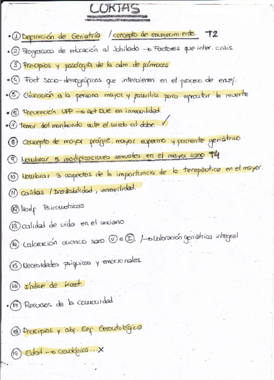 CORTAS
① Definición de Geriatría / concepto de envejecimiento T2
② Programas de educación al Jubilado → Factores que inter. crisis.
③ Principios y psicología de la adm de fármacos
④ Fact socio-demográficos que intervienen en el proceso de envej.
⑤ Educación a la persona mayor y familia para afrontar la muerte
⑥ Prevención UPP → Act DUE en inmovilidad
⑦ Temor del moribundo ante el miedo al dolor ✓
⑧ Concepto de mayor frágil, mayor enfermo y paciente geriátrico
⑨ Nombrar 3 modificaciones sexuales en el mayor sano T4
⑩ Nombrar 3 aspectos de la importancia de la terapéutica en el mayor.
⑪ Caídas / Inestabilidad, inmovilidad.
⑫ Modif Psicomotrices
⑬ Calidad de vida en el anciano
⑭ Valoración anciano sano → Valoración geriátrica integral
⑮ Necesidades psíquicas y emocionales
⑯ Índice de Katz
⑰ Recursos de la comunidad
⑱ Principios y obj. Enf Gerontológica
⑲ Edad → cronológica ... x